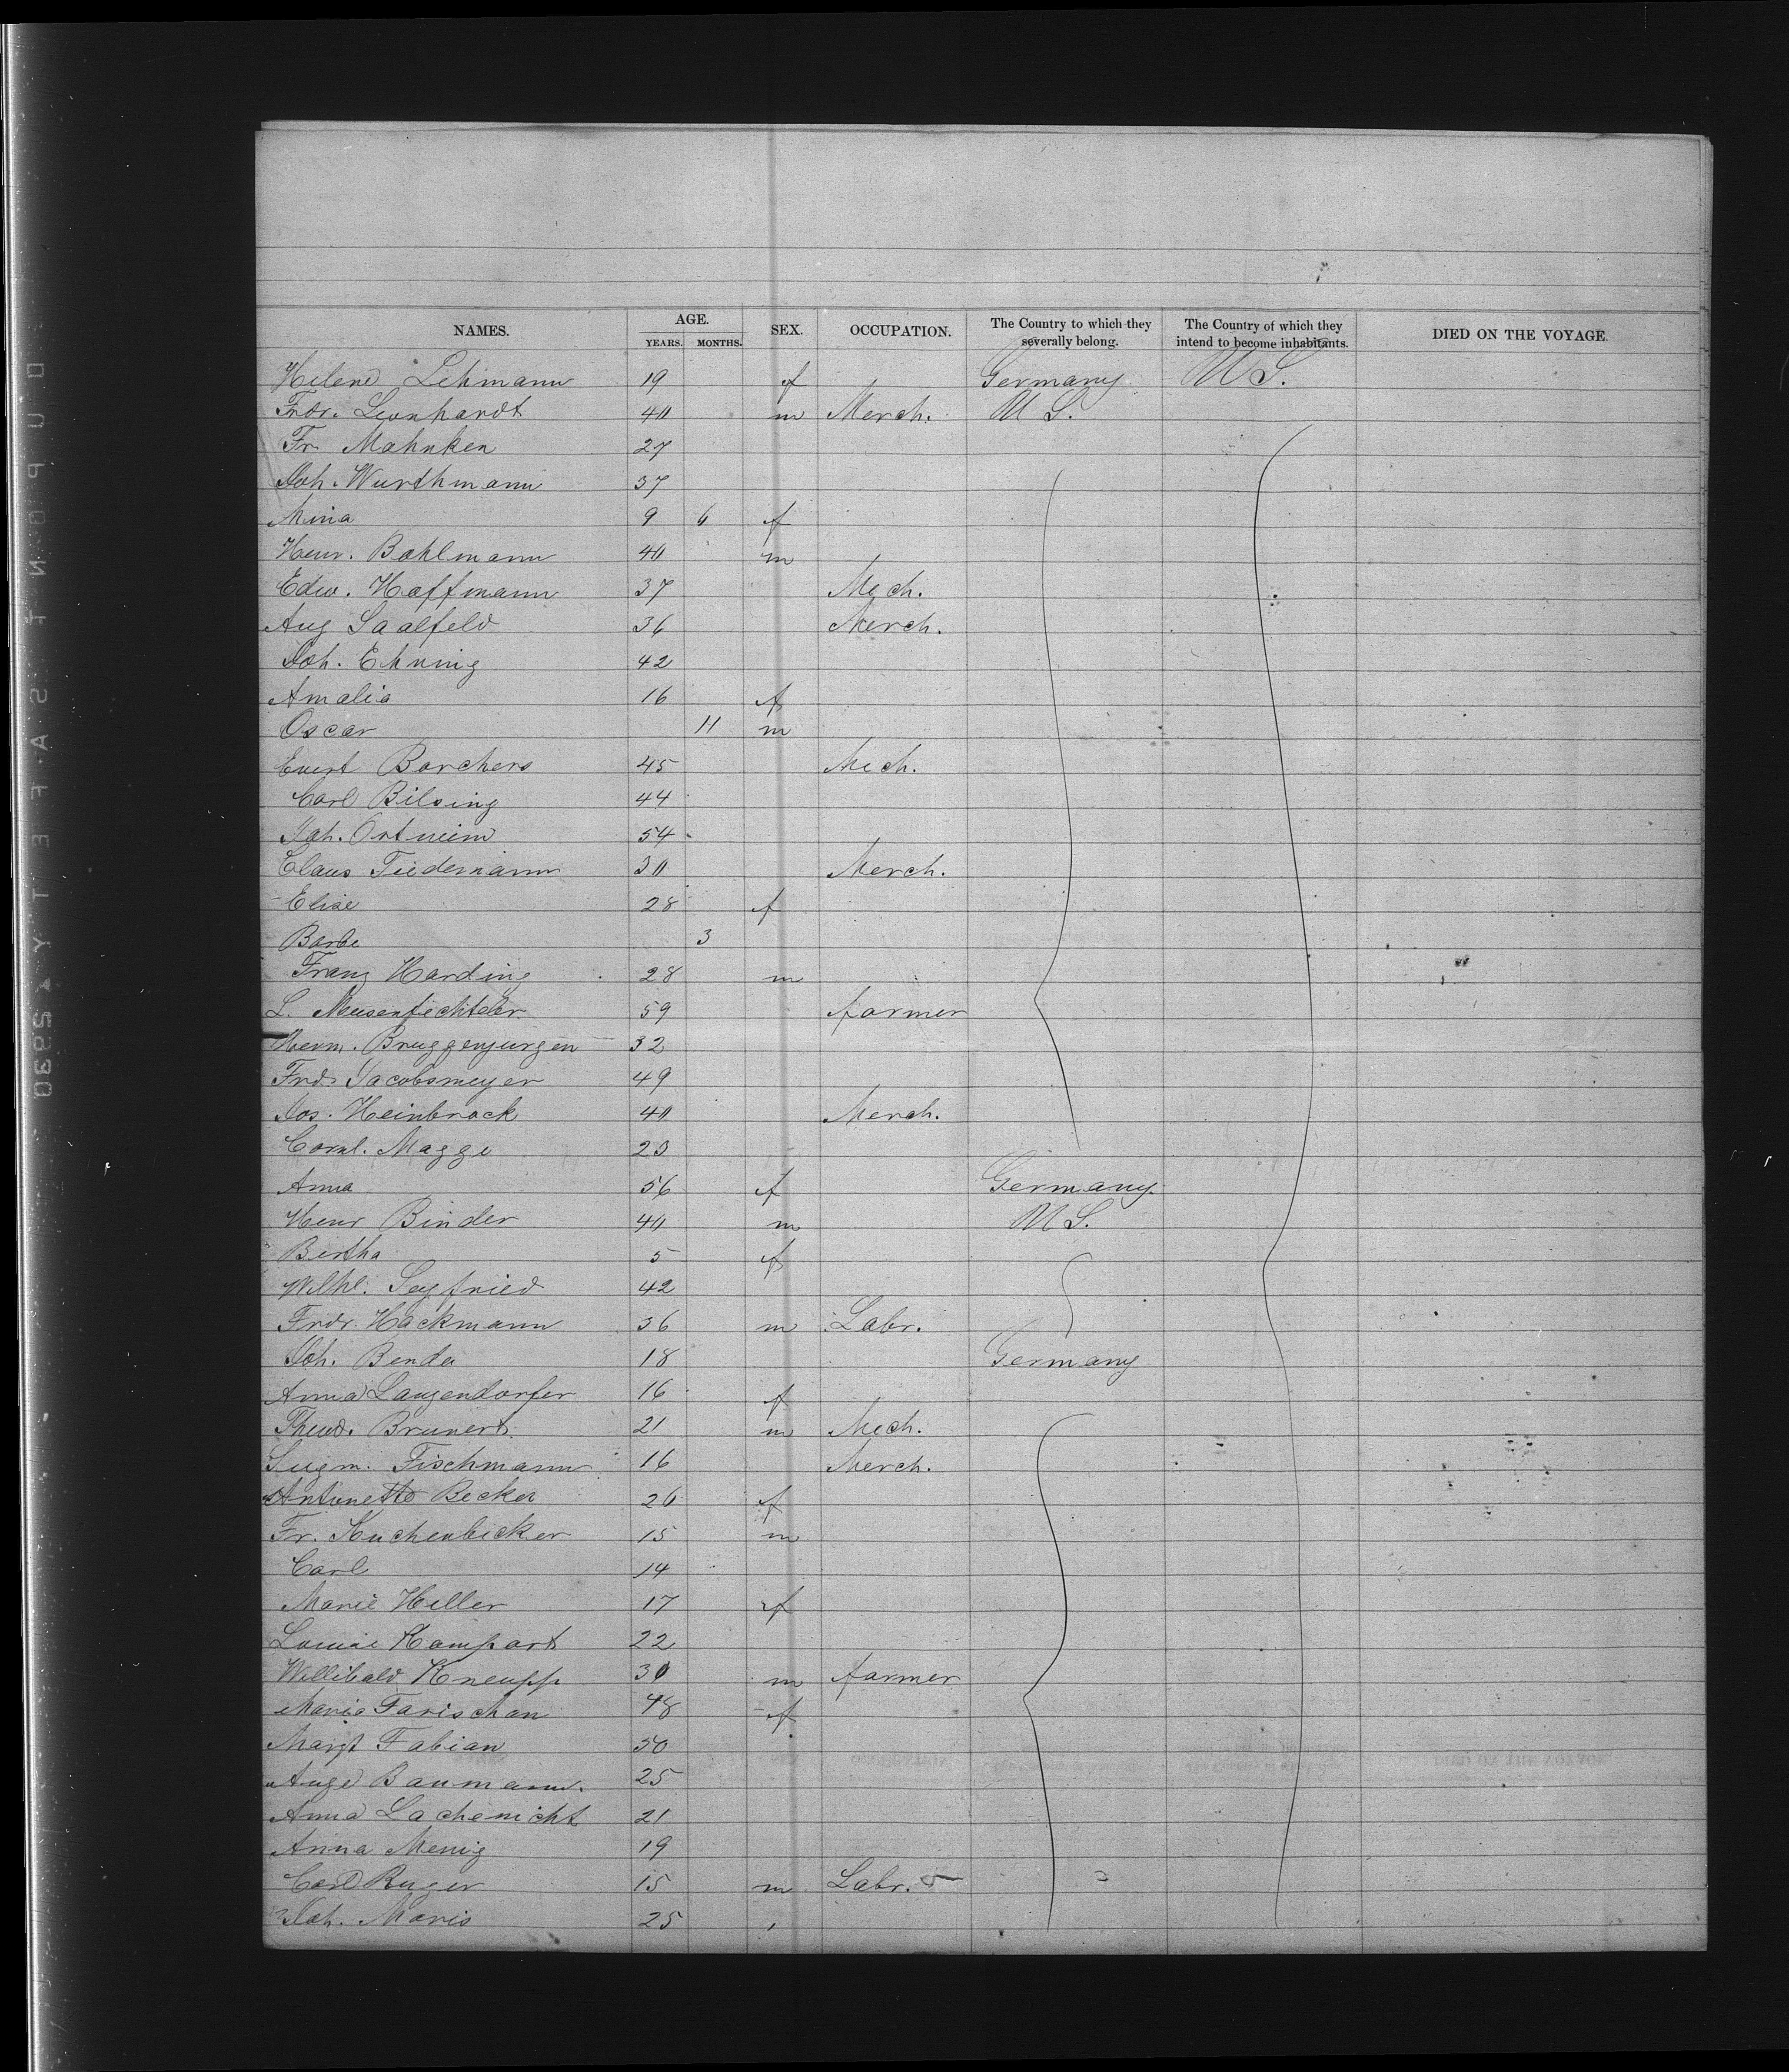 NAMES. AGE. YEARS. MONTHS. SEX. OCCUPATION. The Country to which they severally belong. The Country of which they intend to become inhabitants. DIED ON THE VOYAGE.
Helene Lehmann 19 f Germany U S.
Frdr. Leonhardt 40 m Merch. U S.
Fr. Mahnken 27
Joh. Wurthmann 37
Mina 9 6 f
Henr. Bohlmann 40 m
Edw. Hoffmann 37 Mech.
Aug Saalfeld 36 Merch.
Joh. Ehning 42
Amalia 16 f
Oscar 11 m
Evert Borchers 45 Mech.
Carl Bilsing 44
Joh. Ortwein 54
Claus Tiedemann 30 Merch.
Elise 28 f
Barbe 3
Franz Harding 28 m
L. Meusenfechtder 59 farmer
Herm. Bruggenjurgen 32
Frd. Jacobsmeyer 49
Jos. Heinbrock 40 Merch.
Cornl. Magge 23
Anna 56 f Germany
Henr Binder 40 m U S.
Bertha 5 f
Wilhl. Seyfried 42
Frdr. Hackmann 36 m Labr.
Joh. Benda 18 Germany
Anna Langendorfer 16 f
Theod. Brunert 21 m Mech.
Siegm. Fischmann 16 Merch.
Antonette Becker 26 f
Fr. Kuchenbicker 15 m
Carl 14
Marie Hiller 17 f
Louise Kampart 22
Willibald Kneupp 30 m farmer
Maria Farischan 48 f
Margt Fabian 50
Auge Baumann. 25
Anna Lachenicht 21
Anna Menig 19
Carl Ruger 15 m Labr.
Joh. Maris 25